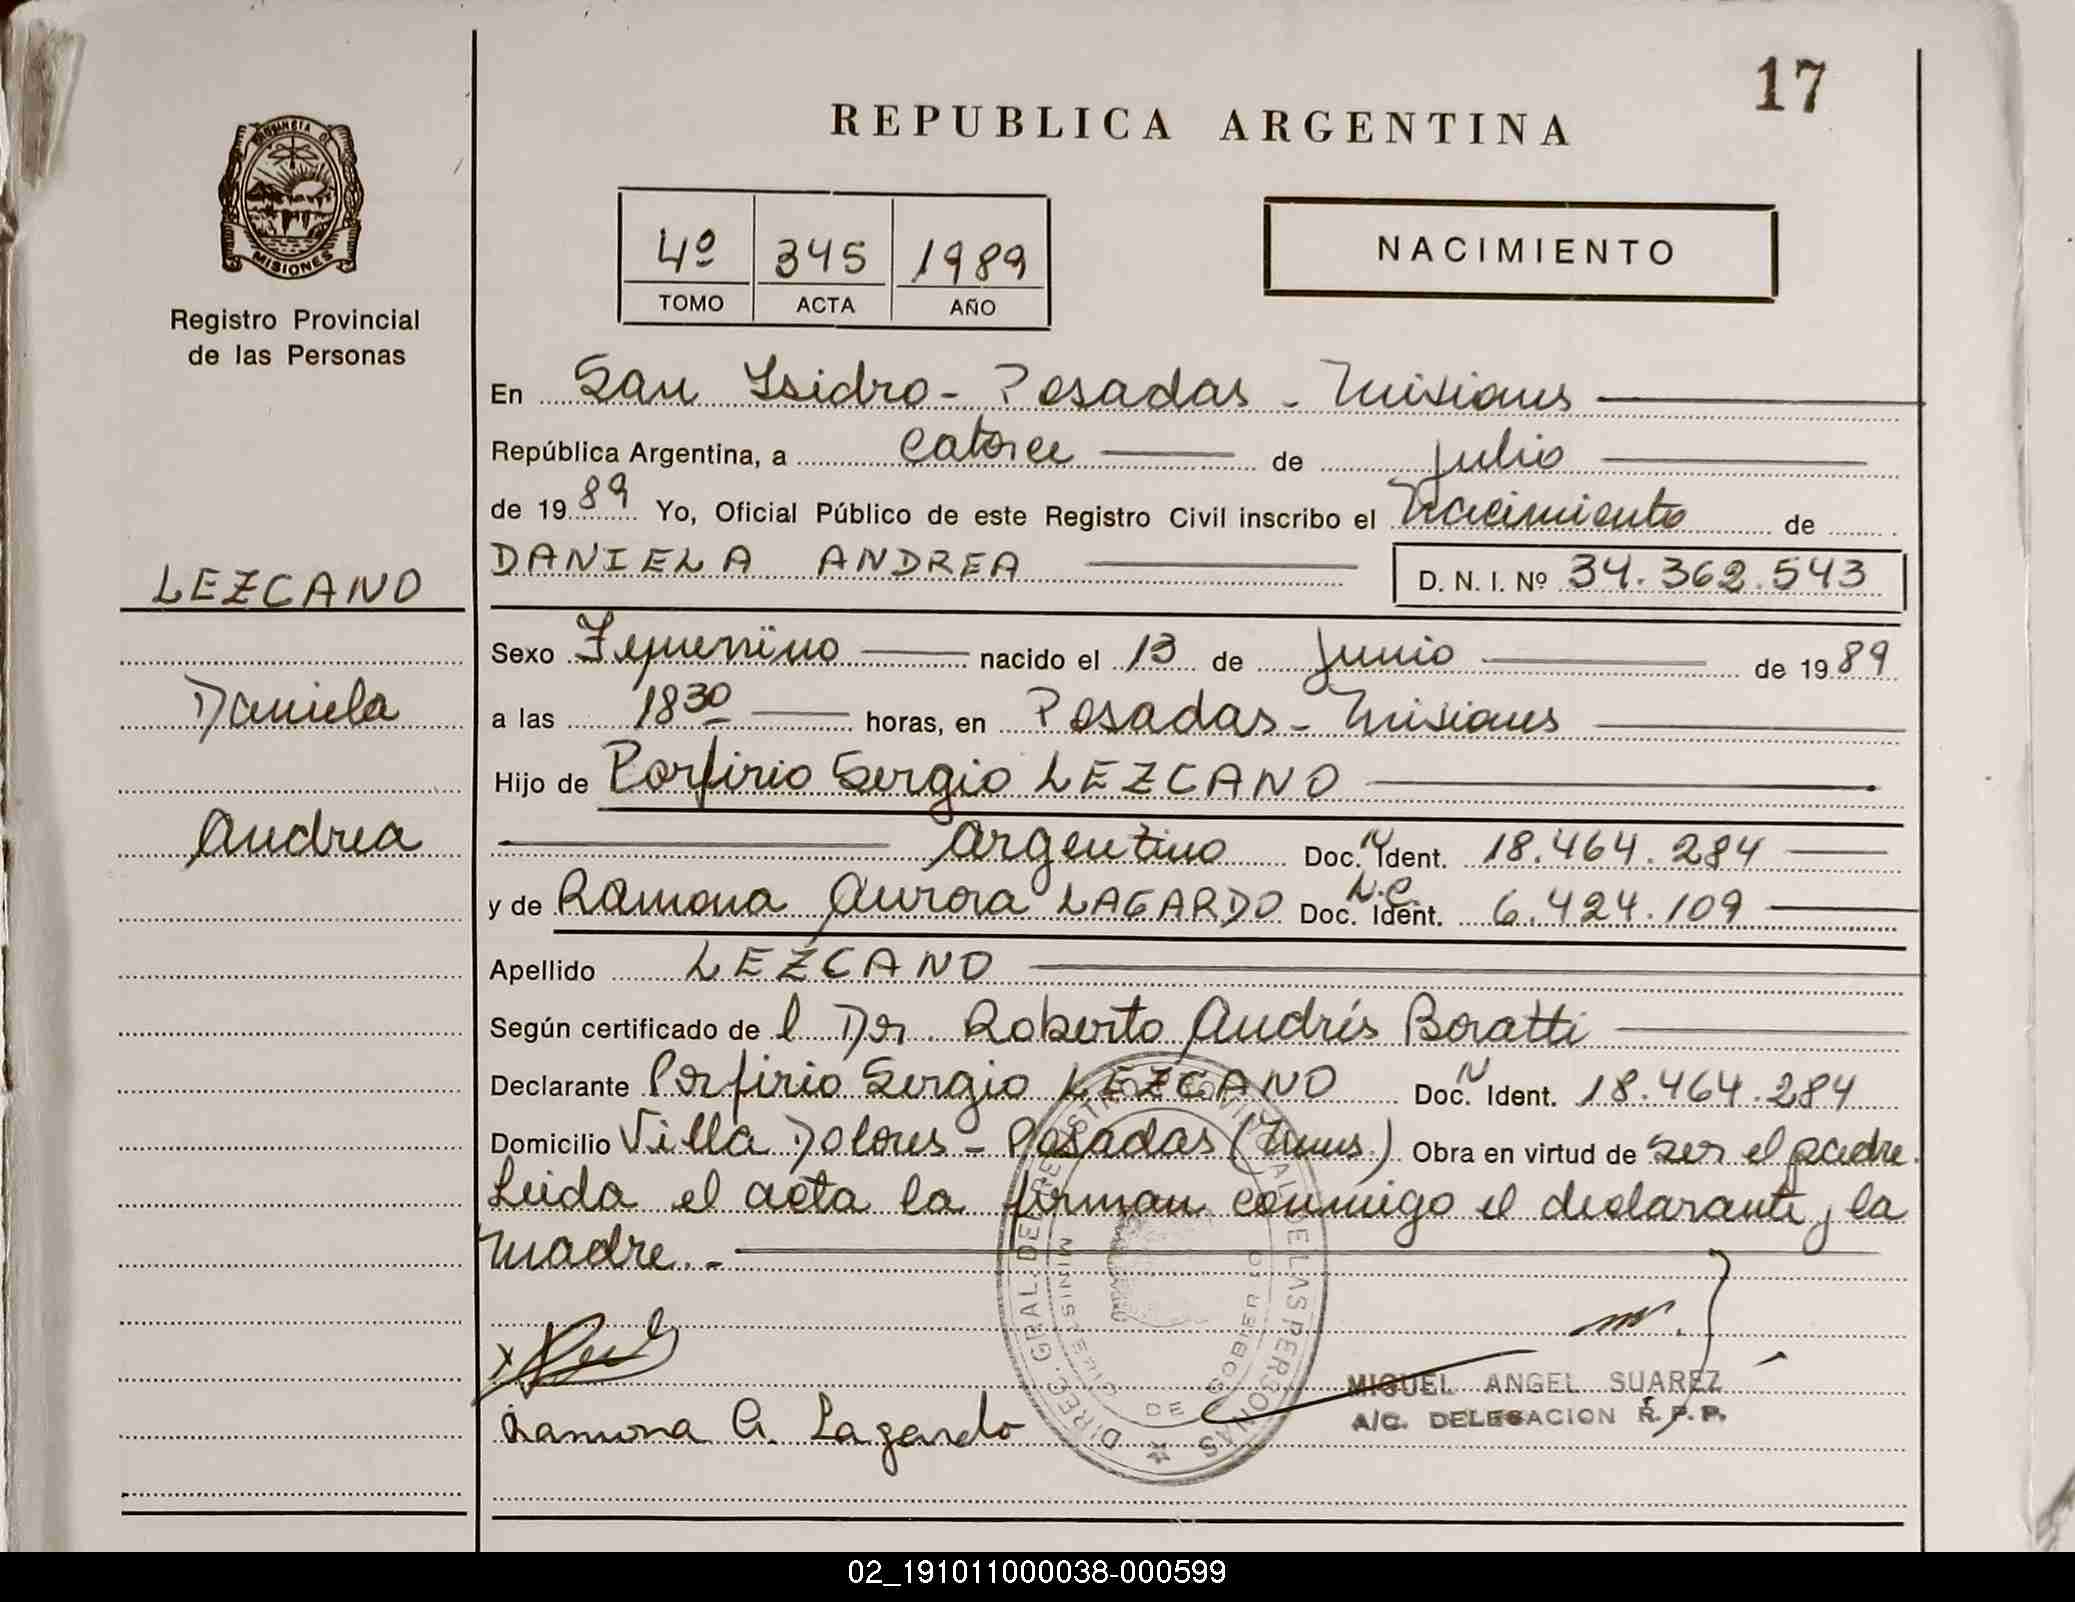 17
REPUBLICA ARGENTINA
PROVINCIA DE
MISIONES
Registro Provincial
de las Personas
4º 345 1989
TOMO ACTA AÑO
NACIMIENTO
En San Isidro - Posadas - Misiones
República Argentina, a catorce de julio
de 1989 Yo, Oficial Público de este Registro Civil inscribo el Nacimiento de
DANIELA ANDREA D. N. I. Nº 34.362.543
LEZCANO
Daniela
Andrea
Sexo Femenino nacido el 13 de junio de 1989
a las 18 30 horas, en Posadas - Misiones
Hijo de Porfirio Sergio LEZCANO
Argentino Doc. N Ident. 18.464.284
y de Ramona Aurora LAGARDO Doc. Ident. 6.424.109
Apellido LEZCANO
Según certificado de l Dr. Roberto Andrés Boratti
Declarante Porfirio Sergio LEZCANO Doc. N Ident. 18.464.284
Domicilio Villa Dolores - Posadas (Mnes.) Obra en virtud de ser el padre.
Leida el acta la firman conmigo el declarante y la
madre.-
Ramona A. Lagardo
DIREC. GRAL. DEL REGISTRO PROVINCIAL DE LAS PERSONAS
MINISTERIO DE GOBIERNO
MIGUEL ANGEL SUAREZ
A/C. DELEGACION R.P.P.
02_191011000038-000599